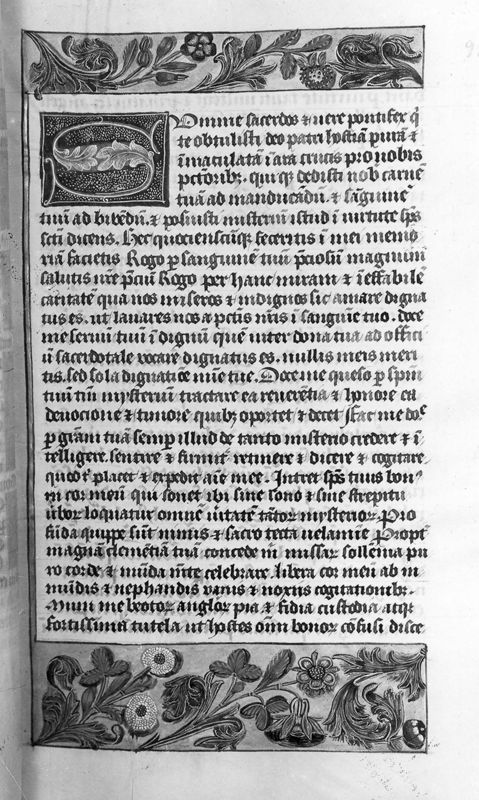 Summe sacerdos & vere pontifex q̄
te obtulisti deo patri hostiam purā &
īmaculatā ī ara crucis pro nobis
pctōribꝫ. qui qꝫ dedisti nob carnē
tuā ad manducādū. & sāguinē
tuū ad bibēdū. & posuisti misteriū istud ī virtute spūs
scti dicens. Hec quociēscūqꝫ feceritis ī mei memo
riā facietis Rogo ꝑ sanguinē tuū p̄ciosū magnum
salutis nr̄e p̄ciū Rogo per hanc miram & īeffabilē
caritatē qua nos miseros & indignos sic amare digna
tus es. ut lavares nos a pctis nr̄is ī sanguīe tuo. doce
me servū tuū ī dignū quē inter dona tua ad offici
ū sacerdotale vocare dignatus es. nullis meis meri
tis. sed sola dignatiōe mīe tue. Doce me queso ꝑ spm̄
tuū tm̄ mysteriū tractare ea reverētia & honore ea
devocione & timore quibꝫ oportet & decet. Fac me doē
ꝑ grām tuā semꝑ illud de tanto misterio credere & ī
telligere. sentire & firmit̄ retinere & dicere & cogitare.
quod t̄ placet & expedit aīe mee. Intret spūs tuus bon⁹
in cor meū qui sonet ibi sine sono & sine strepitu
v̄bor loquatur omnē v̄itatē tātor mysterior Pro
fūda quippe sūt nimis & sacro tecta velamīe Propt̄
magnā clemētiā tuā concede m̄ missar sollēnia pu
ro corde & mūda mēte celebrare. libera cor meū ab in
mūdis & nephandis vanis & noxiis cogitationibꝫ.
Muni me beator angelor pia & fida custodia atqꝫ
fortissima tutela ut hostes oīm bonor cōfusi disce